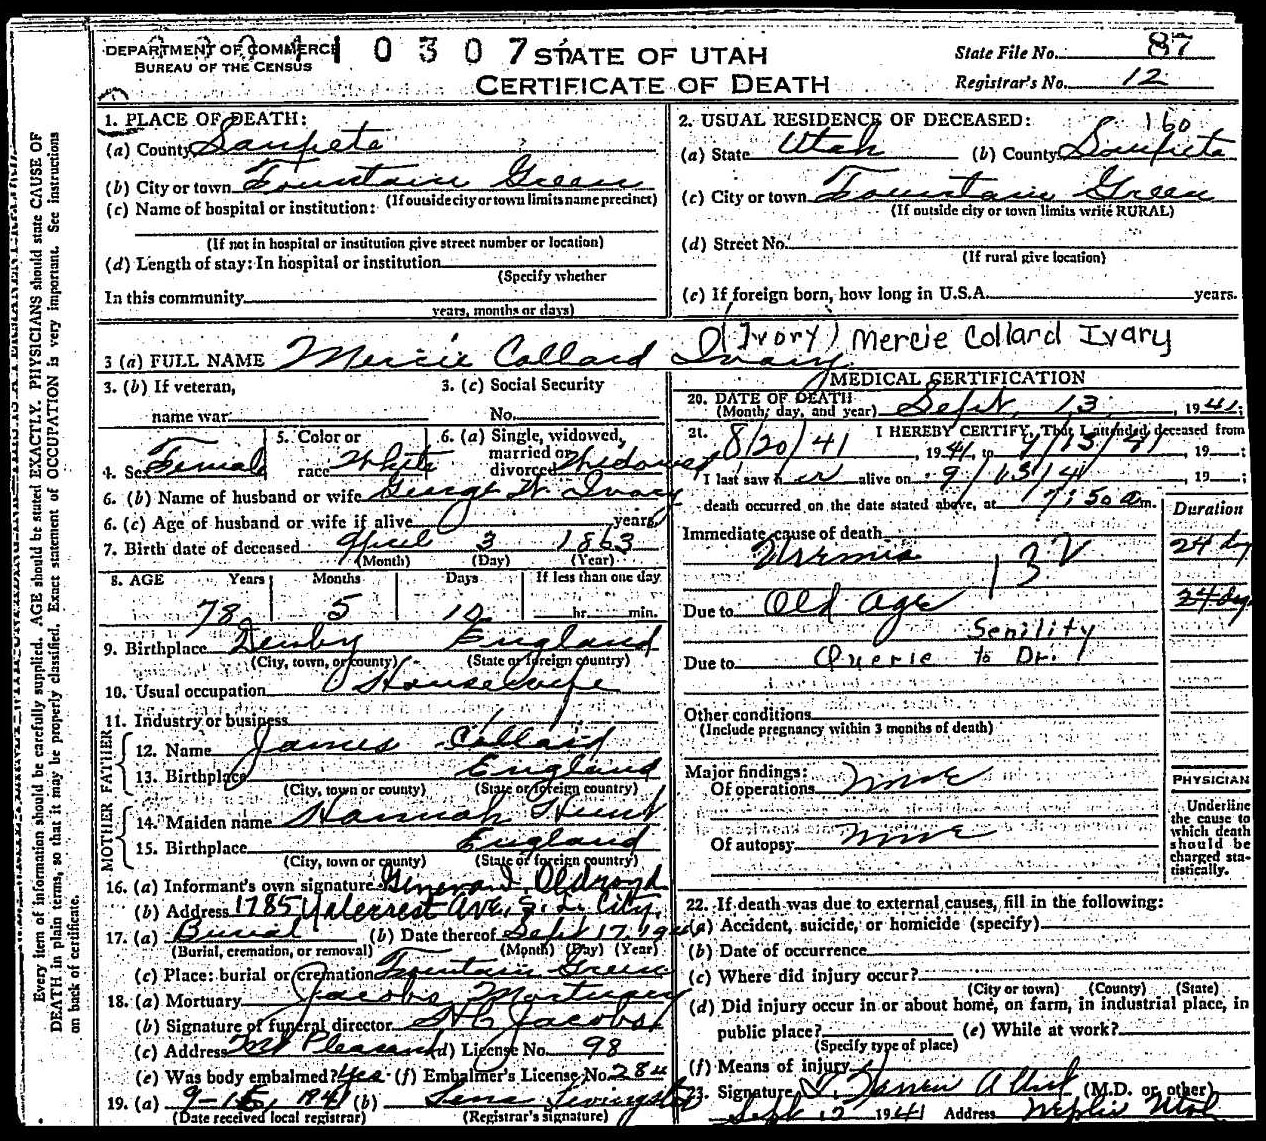 Every item of information should be carefully supplied. AGE should be stated EXACTLY. PHYSICIANS should state CAUSE OF
DEATH in plain terms, so that it may be properly classified. Exact statement of OCCUPATION is very important. See instructions
on back of certificate.
DEPARTMENT OF COMMERCE
BUREAU OF THE CENSUS
10307
STATE OF UTAH
CERTIFICATE OF DEATH
State File No. 87
Registrar's No. 12
1. PLACE OF DEATH:
(a) County Sanpete
(b) City or town Fountain Green
(If outside city or town limits name precinct)
(c) Name of hospital or institution:
(If not in hospital or institution give street number or location)
(d) Length of stay: In hospital or institution
(Specify whether
In this community
years, months or days)
2. USUAL RESIDENCE OF DECEASED: 160
(a) State Utah (b) County Sanpete
(c) City or town Fountain Green
(If outside city or town limits write RURAL)
(d) Street No.
(If rural give location)
(e) If foreign born, how long in U.S.A. years.
3 (a) FULL NAME Mercie Collard Ivary (Ivory) Mercie Collard Ivary
3. (b) If veteran,
name war
3. (c) Social Security
No.
4. Sex Female
5. Color or
race White
6. (a) Single, widowed,
married or
divorced Widowed
6. (b) Name of husband or wife George W. Ivory
6. (c) Age of husband or wife if alive years
7. Birth date of deceased April 3 1863
(Month) (Day) (Year)
8. AGE Years Months Days If less than one day
78 5 10 hr. min.
9. Birthplace Denby England
(City, town, or county) (State or foreign country)
10. Usual occupation Housewife
11. Industry or business
FATHER
12. Name James Collard
13. Birthplace England
(City, town or county) (State or foreign country)
MOTHER
14. Maiden name Hannah Hunt
15. Birthplace England
(City, town or county) (State or foreign country)
16. (a) Informant's own signature Geneva I. Oldroyd
(b) Address 1785 Yalecrest Ave, S. L. City.
17. (a) Burial (b) Date thereof Sept 17, 1941
(Burial, cremation, or removal) (Month) (Day) (Year)
(c) Place: burial or cremation Fountain Green
18. (a) Mortuary Jacobs Mortuary
(b) Signature of funeral director Jacobs
(c) Address Mt Pleasant (d) License No. 98
(e) Was body embalmed? Yes (f) Embalmer's License No. 284
19. (a) 9-15, 1941 (b) Lena Livingston
(Date received local registrar) (Registrar's signature)
MEDICAL CERTIFICATION
20. DATE OF DEATH
(Month, day, and year) Sept. 13, 1941;
21. I HEREBY CERTIFY, That I attended deceased from
8/20/41, 1941, to 9/13/41, 19 ;
I last saw her alive on 9/13/41, 19 ;
death occurred on the date stated above, at 7:50 a m.
Duration
Immediate cause of death
Uremia 132 24 dy
Due to Old Age 24 dys
Senility
Due to Querie to Dr.
Other conditions
(Include pregnancy within 3 months of death)
Major findings:
Of operations none
Of autopsy none
PHYSICIAN
Underline
the cause to
which death
should be
charged sta-
tistically.
22. If death was due to external causes, fill in the following:
(a) Accident, suicide, or homicide (specify)
(b) Date of occurrence
(c) Where did injury occur?
(City or town) (County) (State)
(d) Did injury occur in or about home, on farm, in industrial place, in
public place? (e) While at work?
(Specify type of place)
(f) Means of injury
23. Signature (M.D. or other)
Sept 1941 Address Nephi Utah